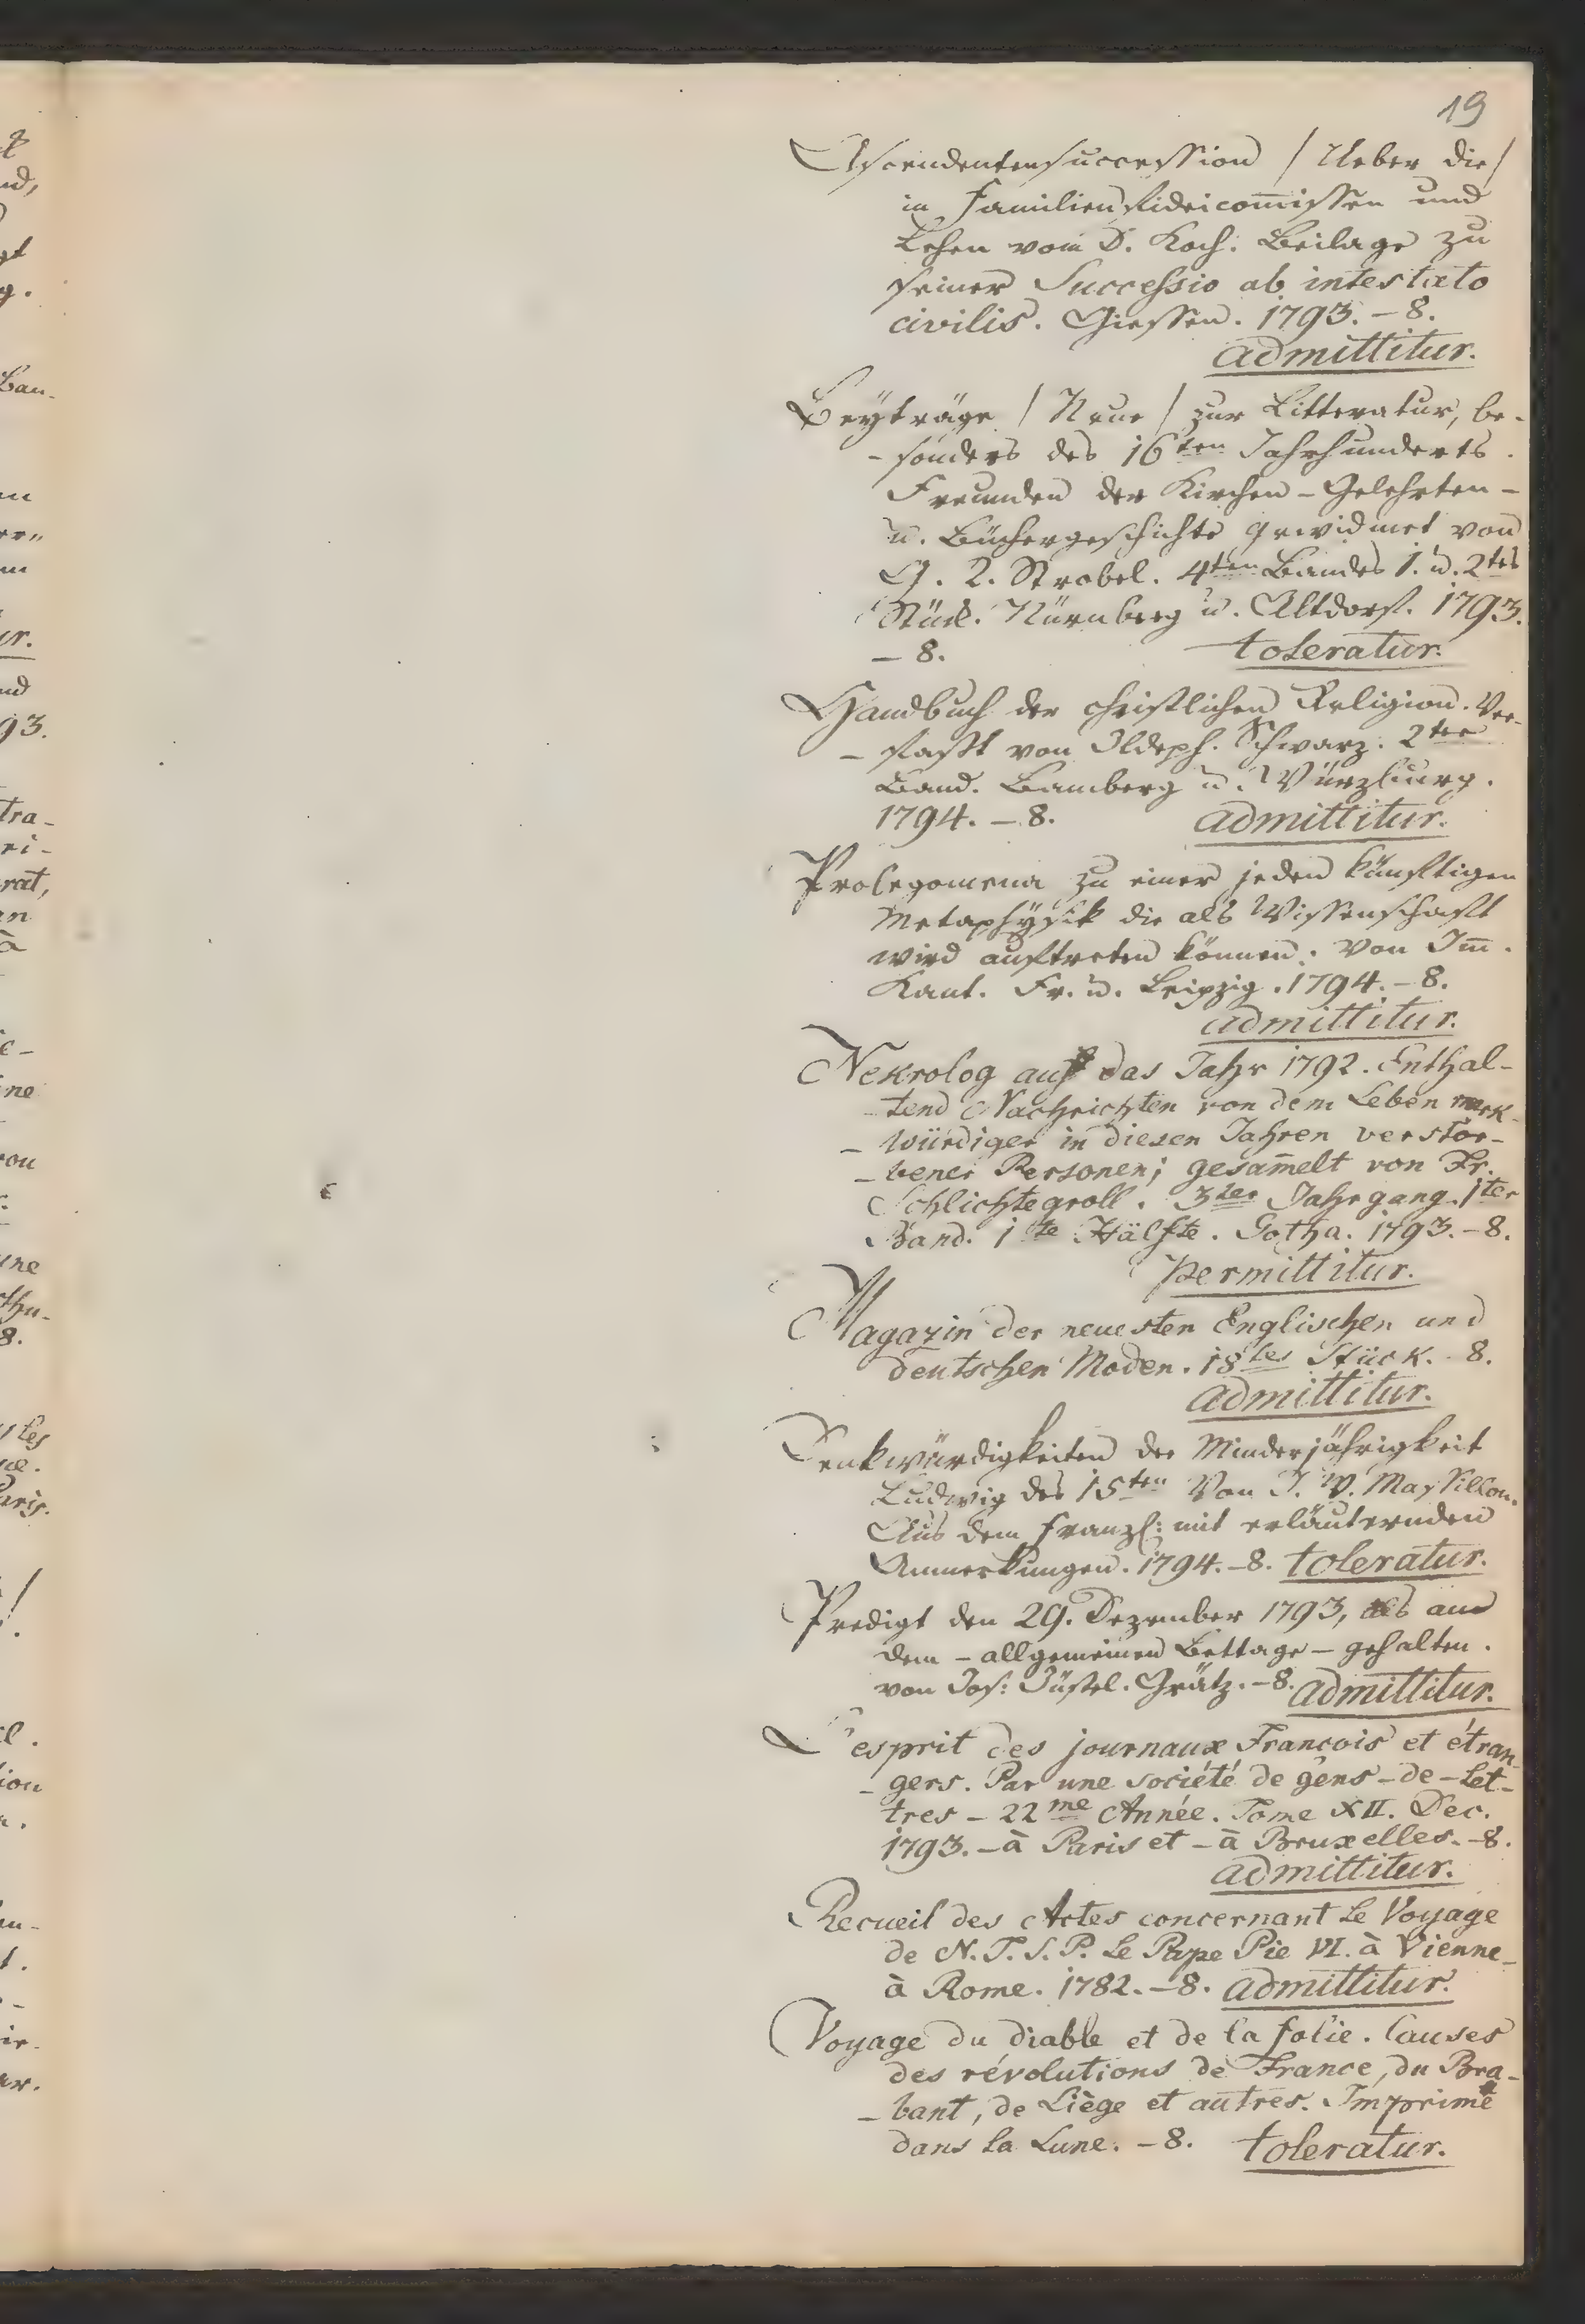 19
Ascendentensuccession / Ueber die /
in Familien Fideicom̅issen und
Lehen vom D. Koch. Beilage zu
seiner Successio ab intestato
civilis. Giessen. 1793. – 8.
admittitur.
Beyträge / Neue / zur Litteratur, be-
- sonders des 16ten Jahrhunderts.
Freunden der Kirchen – Gelehrten –
u. Büchergeschichte gewidmet von
G. T. Strobel. 4ten Bandes 1. u. 2tes
Stück. Nürnberg u. Altdorf. 1793.
– 8. toleratur.
Handbuch der christlichen Religion. Ver-
- faßt von Ildeph. Schwarz. 2ter
Band. Bamberg u. Würzburg.
1794. – 8. admittitur.
Prolegomena zu einer jeden künftigen
Metaphysik die als Wissenschaft
wird auftreten können. Von Im̅.
Kant. Fr. u. Leipzig. 1794. – 8.
admittitur.
Nekrolog auf das Jahr 1792. Enthal-
- tend Nachrichten von dem Leben merk-
- würdiger in diesen Jahren verstor-
- bener Personen; gesam̅elt von Fr.
Schlichtegroll. 3ter Jahrgang. 1ter
Band. 1te Hälfte. Gotha. 1793. – 8.
permittitur.
Magazin der neuesten Englischen und
deutschen Moden. 18tes Stück. - 8.
admittitur.
Denkwürdigkeiten der Minderjährigkeit
Ludwig des 15ten Von J. B. Massillon.
Aus dem franzs: mit erläuternden
Anmerkungen. 1794. – 8. toleratur.
Predigt den 29. Dezember 1793, als an
dem – allgemeinen Bettage – gehalten.
von Jos: Jüstel. Grätz. – 8. admittitur.
L'esprit des journaux Francois et étran-
- gers. Par une société de gens – de – Let-
tres – 22me Année. Tome XII. Dec.
1793. – à Paris et – à Bruxelles. – 8.
admittitur.
Recueil des Actes concernant Le Voyage
de N. T. S. P. Le Pape Pie VI. à Vienne –
à Rome. 1782. – 8. admittitur.
Voyage du diable et de la folie. Causes
des révolutions de France, du Bra-
- bant, de Liège et autres. Imprimé
dans la Lune. – 8. toleratur.